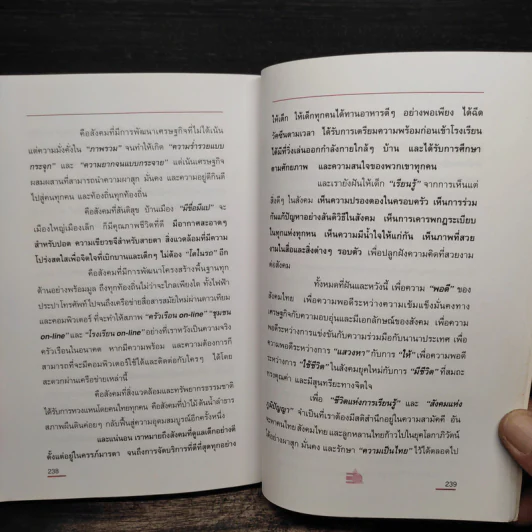 คือสังคมที่มีการพัฒนาเศรษฐกิจที่ไม่ได้เน้น
แต่ความมั่งคั่งใน "ภาพรวม" จนทำให้เกิด "ความร่ำรวยแบบ
กระจุก" และ "ความยากจนแบบกระจาย" แต่เน้นเศรษฐกิจ
ผสมผสานที่สามารถนำความผาสุก มั่นคง และความอยู่ดีกินดี
ไปสู่คนทุกคน และท้องถิ่นทุกท้องถิ่น
คือสังคมที่สันติสุข บ้านเมือง "มีขื่อมีแป" จะ
เมืองใหญ่เมืองเล็ก ก็มีคุณภาพชีวิตที่ดี มีอากาศสะอาดๆ
สำหรับปอด ความเขียวขจีสำหรับสายตา สิ่งแวดล้อมที่มีความ
โปร่งสดใสเพื่อจิตใจที่เบิกบานและเด็กๆ ไม่ต้อง "โตในรถ" อีก
คือสังคมที่มีการพัฒนาโครงสร้างพื้นฐานทุก
ด้านอย่างพร้อมมูล ทุกท้องถิ่นไม่ว่าจะไกลเพียงใด ทั้งไฟฟ้า
ประปาโทรศัพท์ไปจนถึงเครือข่ายสื่อสารสมัยใหม่ผ่านดาวเทียม
และคอมพิวเตอร์ ที่จะทำให้สภาพ "ครัวเรือน on-line" "ชุมชน
on-line" และ "โรงเรียน on-line" อย่างที่เราหวังเป็นความจริง
ครัวเรือนในอนาคต หากมีความพร้อม และความต้องการก็
สามารถที่จะมีคอมพิวเตอร์ใช้และติดต่อกับใครๆ ได้โดย
สะดวกผ่านเครือข่ายเหล่านี้
คือสังคมที่สิ่งแวดล้อมและทรัพยากรธรรมชาติ
ได้รับการหวงแหนโดยคนไทยทุกคน คือสังคมที่ป่าไม้ต้นน้ำลำธาร
สภาพผืนดินค่อยๆ กลับฟื้นสู่ความอุดมสมบูรณ์อีกครั้งหนึ่ง
และแน่นอน เราหมายถึงสังคมที่ดูแลเด็กอย่างดี
ตั้งแต่อยู่ในครรภ์มารดา จนถึงการจัดบริการที่ดีที่สุดทุกอย่าง
238
ให้เด็ก ให้เด็กทุกคนได้ทานอาหารดีๆ อย่างพอเพียง ได้ฉีด
วัคซีนตามเวลา ได้รับการเตรียมความพร้อมก่อนเข้าโรงเรียน
ได้มีที่วิ่งเล่นออกกำลังกายใกล้ๆ บ้าน และได้รับการศึกษา
ตามศักยภาพ และความสนใจของพวกเขาทุกคน
และเรายังฝันให้เด็ก "เรียนรู้" จากการเห็นแต่
สิ่งดีๆ ในสังคม เห็นความปรองดองในครอบครัว เห็นการร่วม
กันแก้ปัญหาอย่างสันติวิธีในสังคม เห็นการเคารพกฎระเบียบ
ในทุกแห่งทุกหน เห็นความมีน้ำใจให้แก่กัน เห็นภาพที่สวย
งามในสื่อและสิ่งต่างๆ รอบตัว เพื่อปลูกฝังความคิดที่สวยงาม
ต่อสังคม
ทั้งหมดที่ฝันและหวังนี้ เพื่อความ "พอดี" ของ
สังคมไทย เพื่อความพอดีระหว่างความเข้มแข็งมั่นคงทาง
เศรษฐกิจกับความอบอุ่นและมีเอกลักษณ์ของสังคม เพื่อความ
พอดีระหว่างการแข่งขันกับความร่วมมือกับนานาประเทศ เพื่อ
ความพอดีระหว่างการ "แสวงหา" กับการ "ให้" เพื่อความพอดี
ระหว่างการ "ใช้ชีวิต" ในสังคมยุคใหม่กับการ "มีชีวิต" ที่สมถะ
ทรงคุณค่า และมีสุนทรียะทางจิตใจ
เพื่อ "ชีวิตแห่งการเรียนรู้" และ "สังคมแห่ง
ภูมิปัญญา" จำเป็นที่เราต้องมีสติสำนึกอยู่ในความสามัคคี อัน
จะพาคนไทย สังคมไทย และลูกหลานไทยก้าวไปในยุคโลกาภิวัตน์
ได้อย่างผาสุก มั่นคง และรักษา "ความเป็นไทย" ไว้ได้ตลอดไป
239